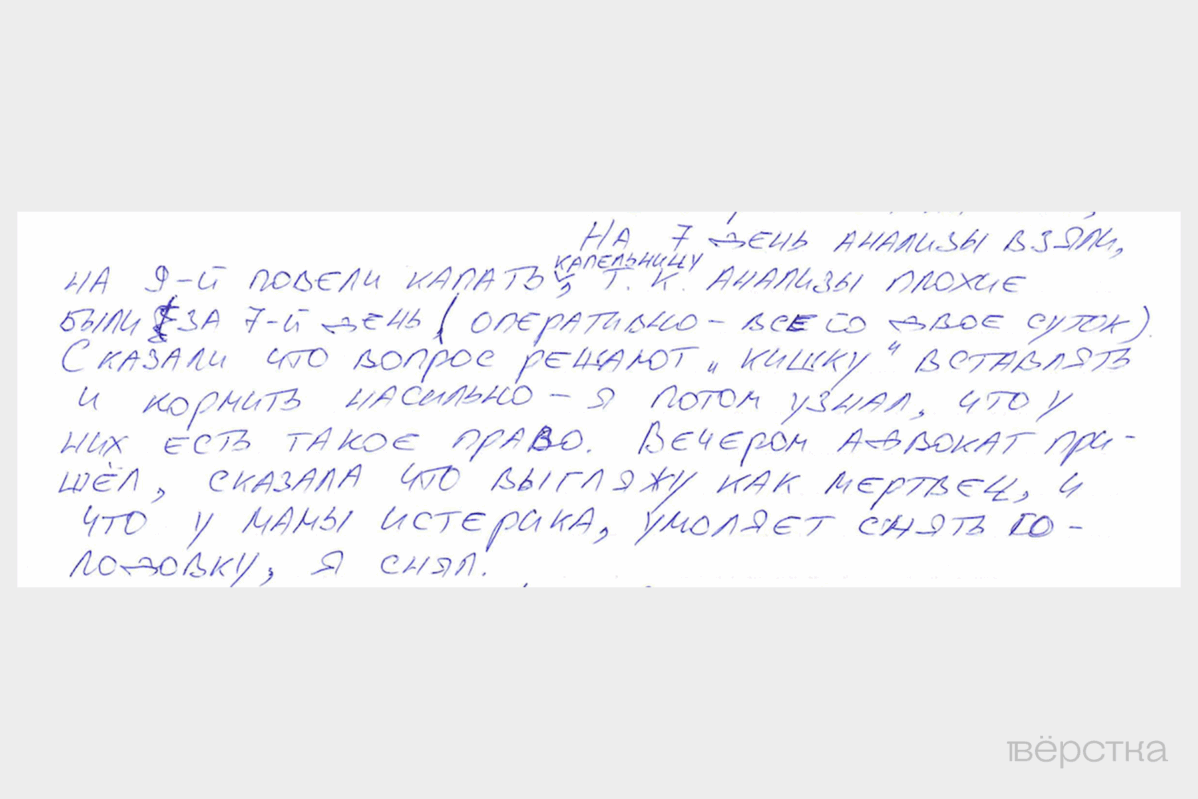 На 7 день анализы взяли,
капельницу
на 9-й повели капать, т.к. анализы плохие
были за 7-й день (оперативно – всего двое суток).
Сказали что вопрос решают „кишку“ вставлять
и кормить насильно – я потом узнал, что у
них есть такое право. Вечером адвокат при-
шёл, сказала что выгляжу как мертвец, и
что у мамы истерика, умоляет снять го-
лодовку, я снял.
вёрстка